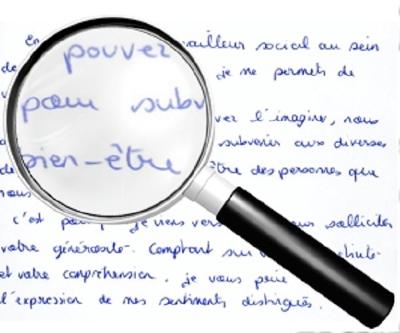 En pouvez travailleur social au sein
de je me permets de
pour subv vez l'imaginer, nous
subvenir aux diverses
bien-être être des personnes que
nous
c'est je viens vers vous solliciter
votre générosité. Comptant sur
et votre compréhension, je vous prie
l'expression de mes sentiments distingués.